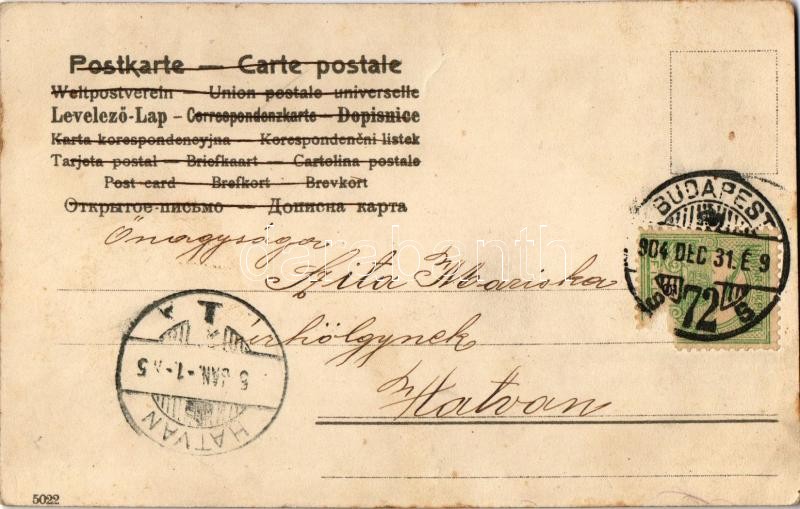 Postkarte — Carte postale
Weltpostverein — Union postale universelle
Levelező-Lap – Correspondenzkarte – Dopisnice
Karta korespondencyjna — Korespondenční listek
Tarjeta postal — Briefkaart — Cartolina postale
Post card — Brefkort — Brevkort
Открытое-письмо — Дописна карта
BUDAPEST
904 DEC 31. E 9
72
5
Őnagysága
darabanth
Mariska
T
Hatvan
JAN.
5
HATVAN
5022